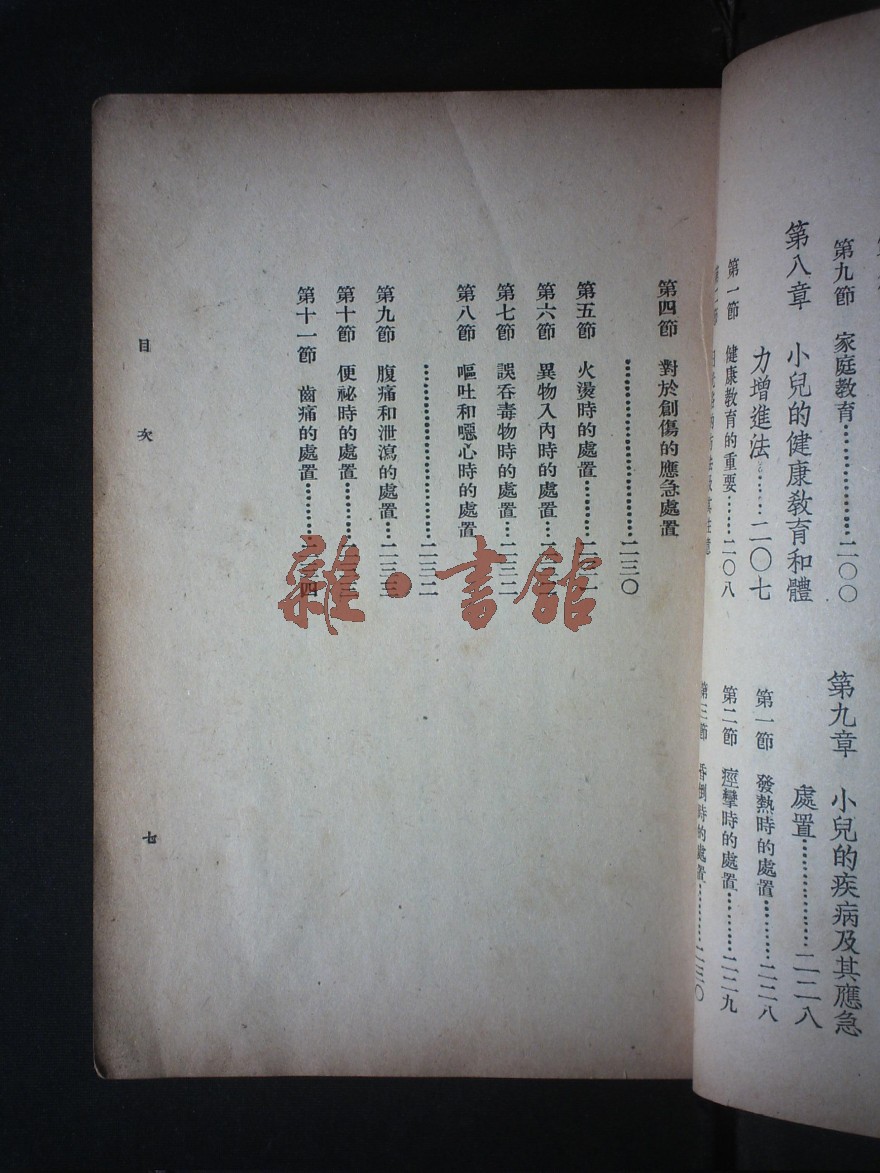 第九節　家庭教育……………二〇〇
第八章　小兒的健康教育和體
力增進法……二〇七
第一節　健康教育的重要……二〇八
第九章　小兒的疾病及其應急
處置……………二二八
第一節　發熱時的處置…………二二八
第二節　痙攣時的處置…………二二九
第三節　昏倒時的處置…………二三〇
第四節　對於創傷的應急處置
……………………………二三〇
第五節　火燙時的處置…………
第六節　異物入內時的處置……
第七節　誤吞毒物時的處置…二三二
第八節　嘔吐和噁心時的處置
……………………………二三二
第九節　腹痛和泄瀉的處置…二三三
第十節　便祕時的處置…………
第十一節　齒痛的處置…………
目次
七
雜・書館